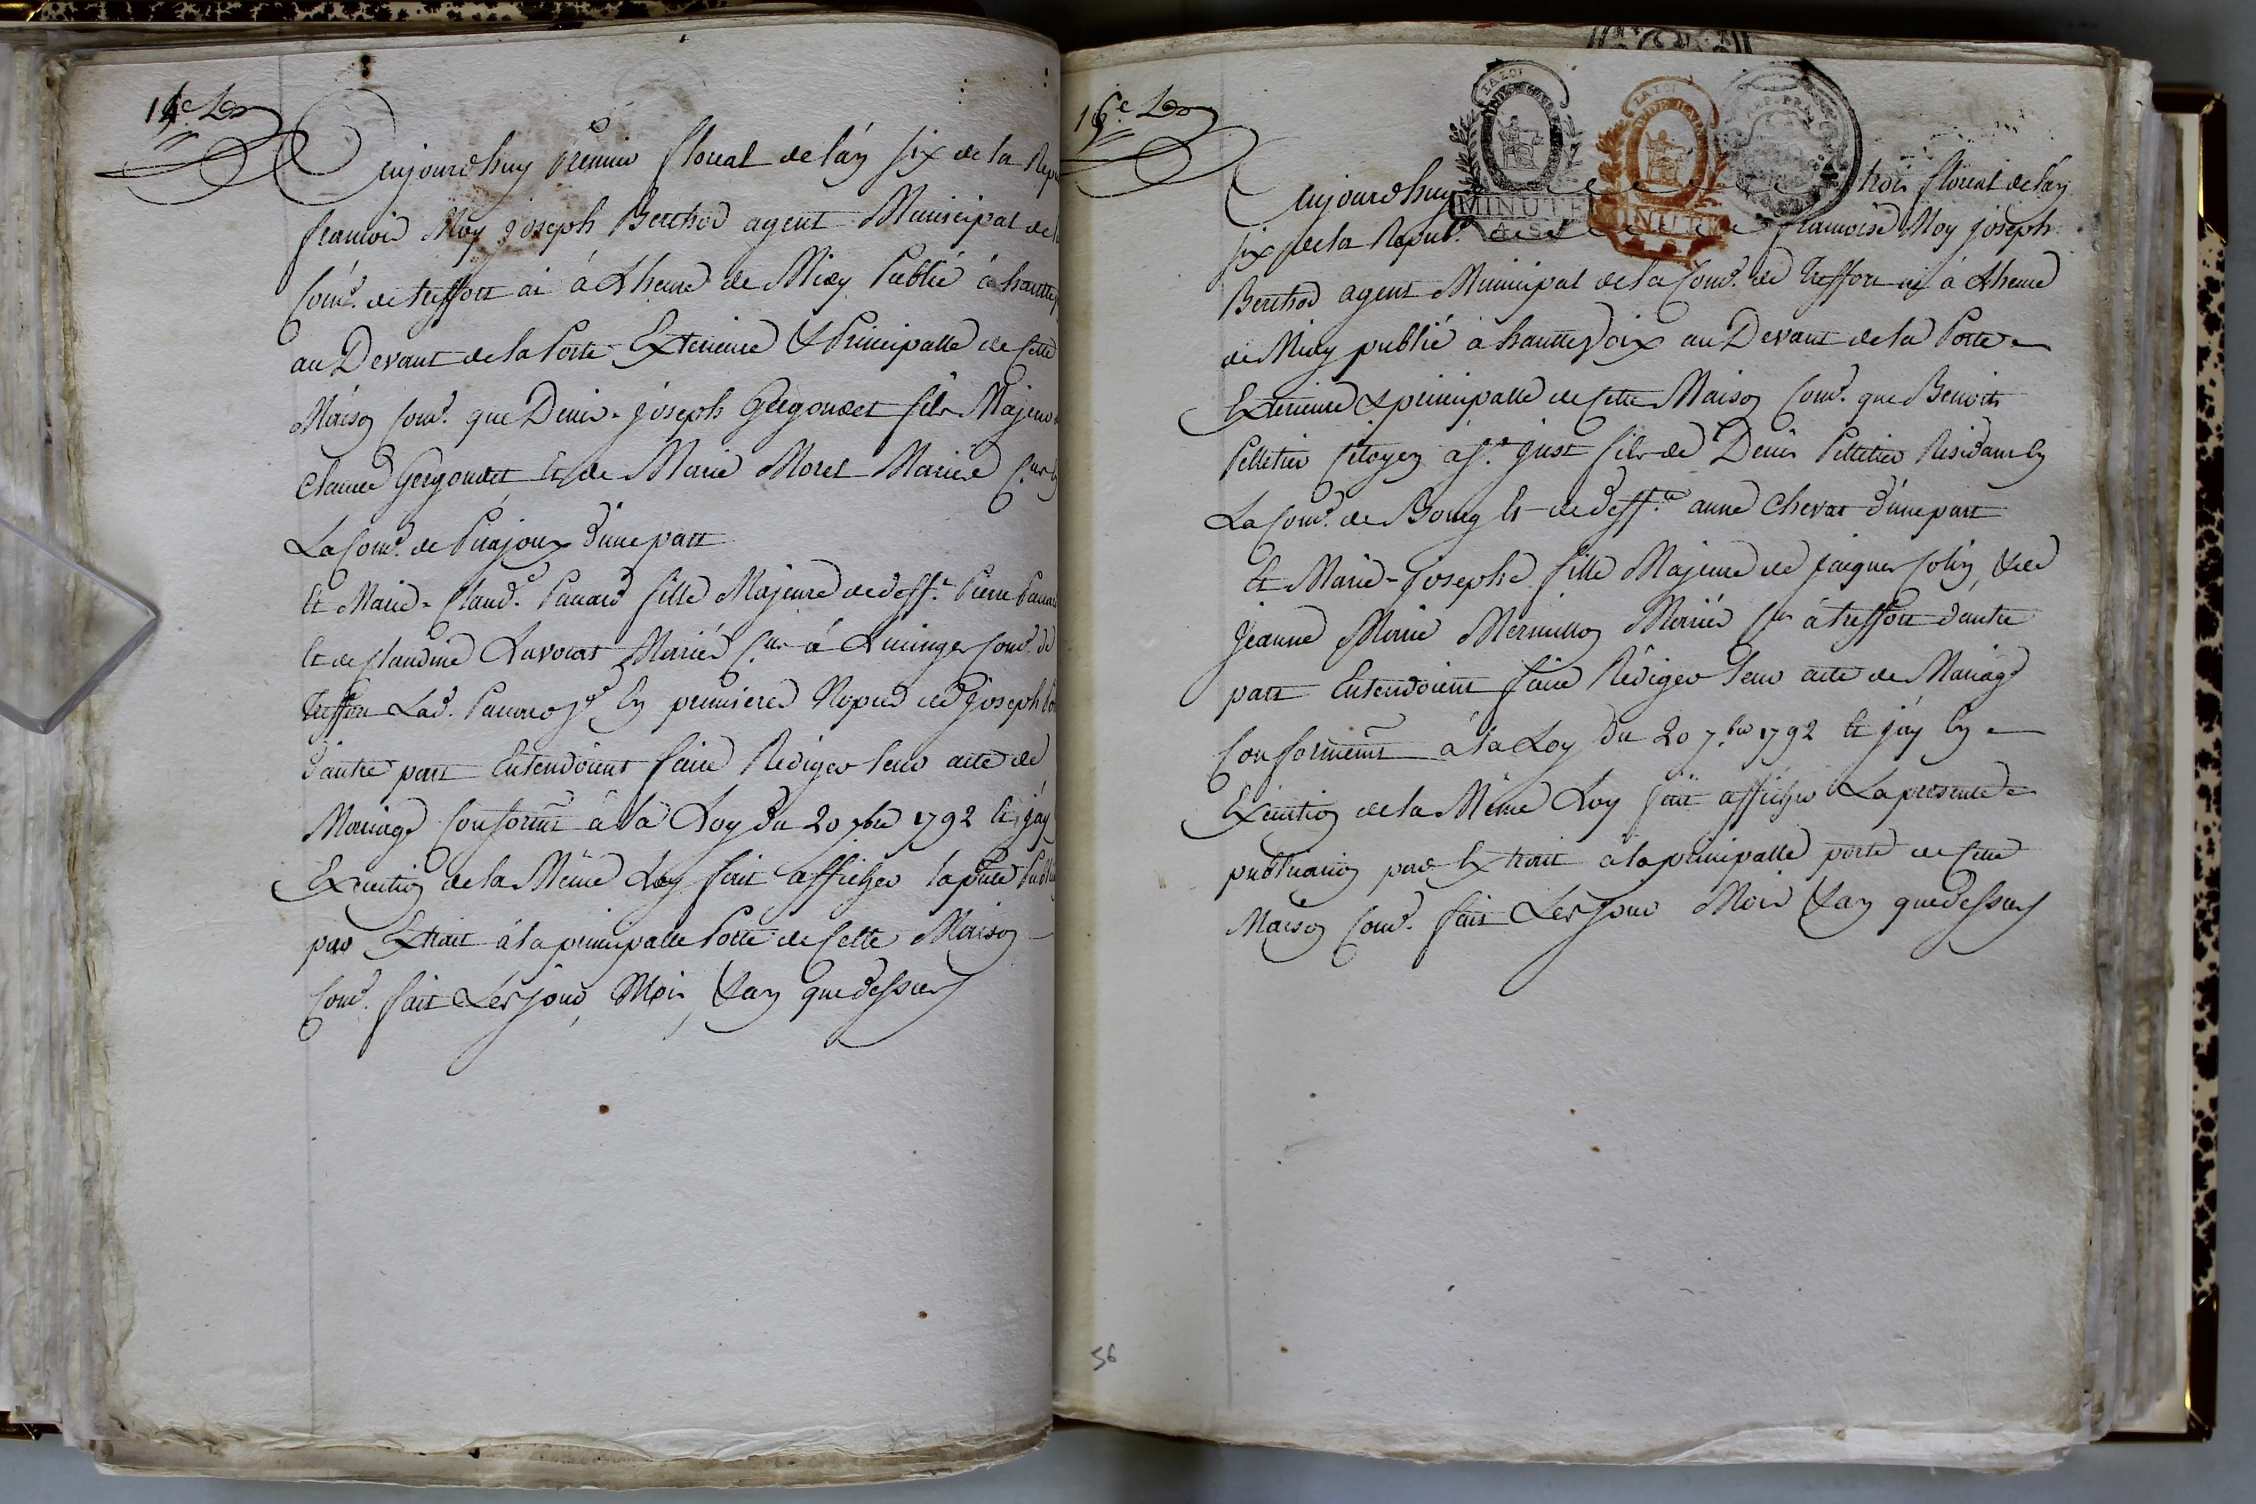 Aujourdhuy Premier floreal de l'an six de la Rep
francoise Moy joseph Berthod agent Municipal de
Com.e de treffort ai à 4 heure de Midy Publié à hautte
au Devant de la Porte Exterieure & Principalle de Cette
Maison Com.e que Denis-joseph Gregoudet fils Majeur
Claude Gregoudet Et de Marie Moret Mariés
La Com.e de Pirajoux d'une part
Et Marie-Claud.e Panard fille Majeure de deff.t Pierre
Et de Claudine Lavocat Mariés à Luiinge Com.e de
treffort Lad. en premiere Nopce de joseph
d'autre part Entendoient faire Rediger leur acte de
Mariage Conform.t à la Loy du 20 7bre 1792 Et j'ay
Execution de la Même Loy fait afficher la pnte
par Extrait à la principalle Porte de Cette Maison
Com.e fait Les jour, Mois, & an que dessus
Aujourdhuy trois floreal de l'an
six de la Repub.e francoise Moy joseph
Berthod agent Municipal de la Com.e de treffort ai à 4 heure
de Midy publié à hautte voix au Devant de la Porte
Exterieure & principalle de Cette Maison Com.e que Benoitt
Pelletier Citoyen à S.t just fils de Denis Pelletier Residant En
La Com.e de Bourg Et de deff.te anne Chevat d'une part
Et Marie-josephe fille Majeure de jacques Colin, & de
jeanne Marie Mermillon Mariés à treffort d'autre
part Entendoient faire Rediger leur acte de Mariage
Conformement à la Loy du 20 7.bre 1792 Et j'ay En
Execution de la Même Loy fait afficher La presente
publication par Extrait à la principalle porte de Cette
Maison Com.e fait Les jour Mois & an que dessus
LA LOI
MINUTE
LA LOI
MINUTE
56